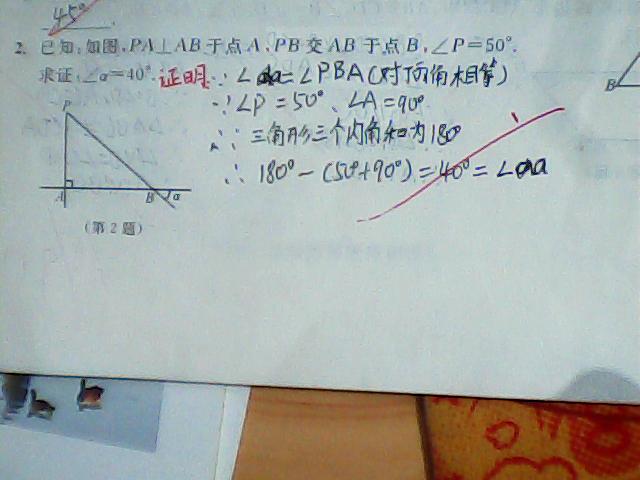 45°
2. 已知:如图,PA⊥AB于点A,PB交AB于点B,∠P=50°.
求证:∠α=40°. 证明: ∵∠α=∠PBA(对顶角相等)
∵∠P=50°、∠A=90°
∵三角形三个内角和为180°
∴180°-(50°+90°)=40°=∠α
P
A B α
(第2题)
B